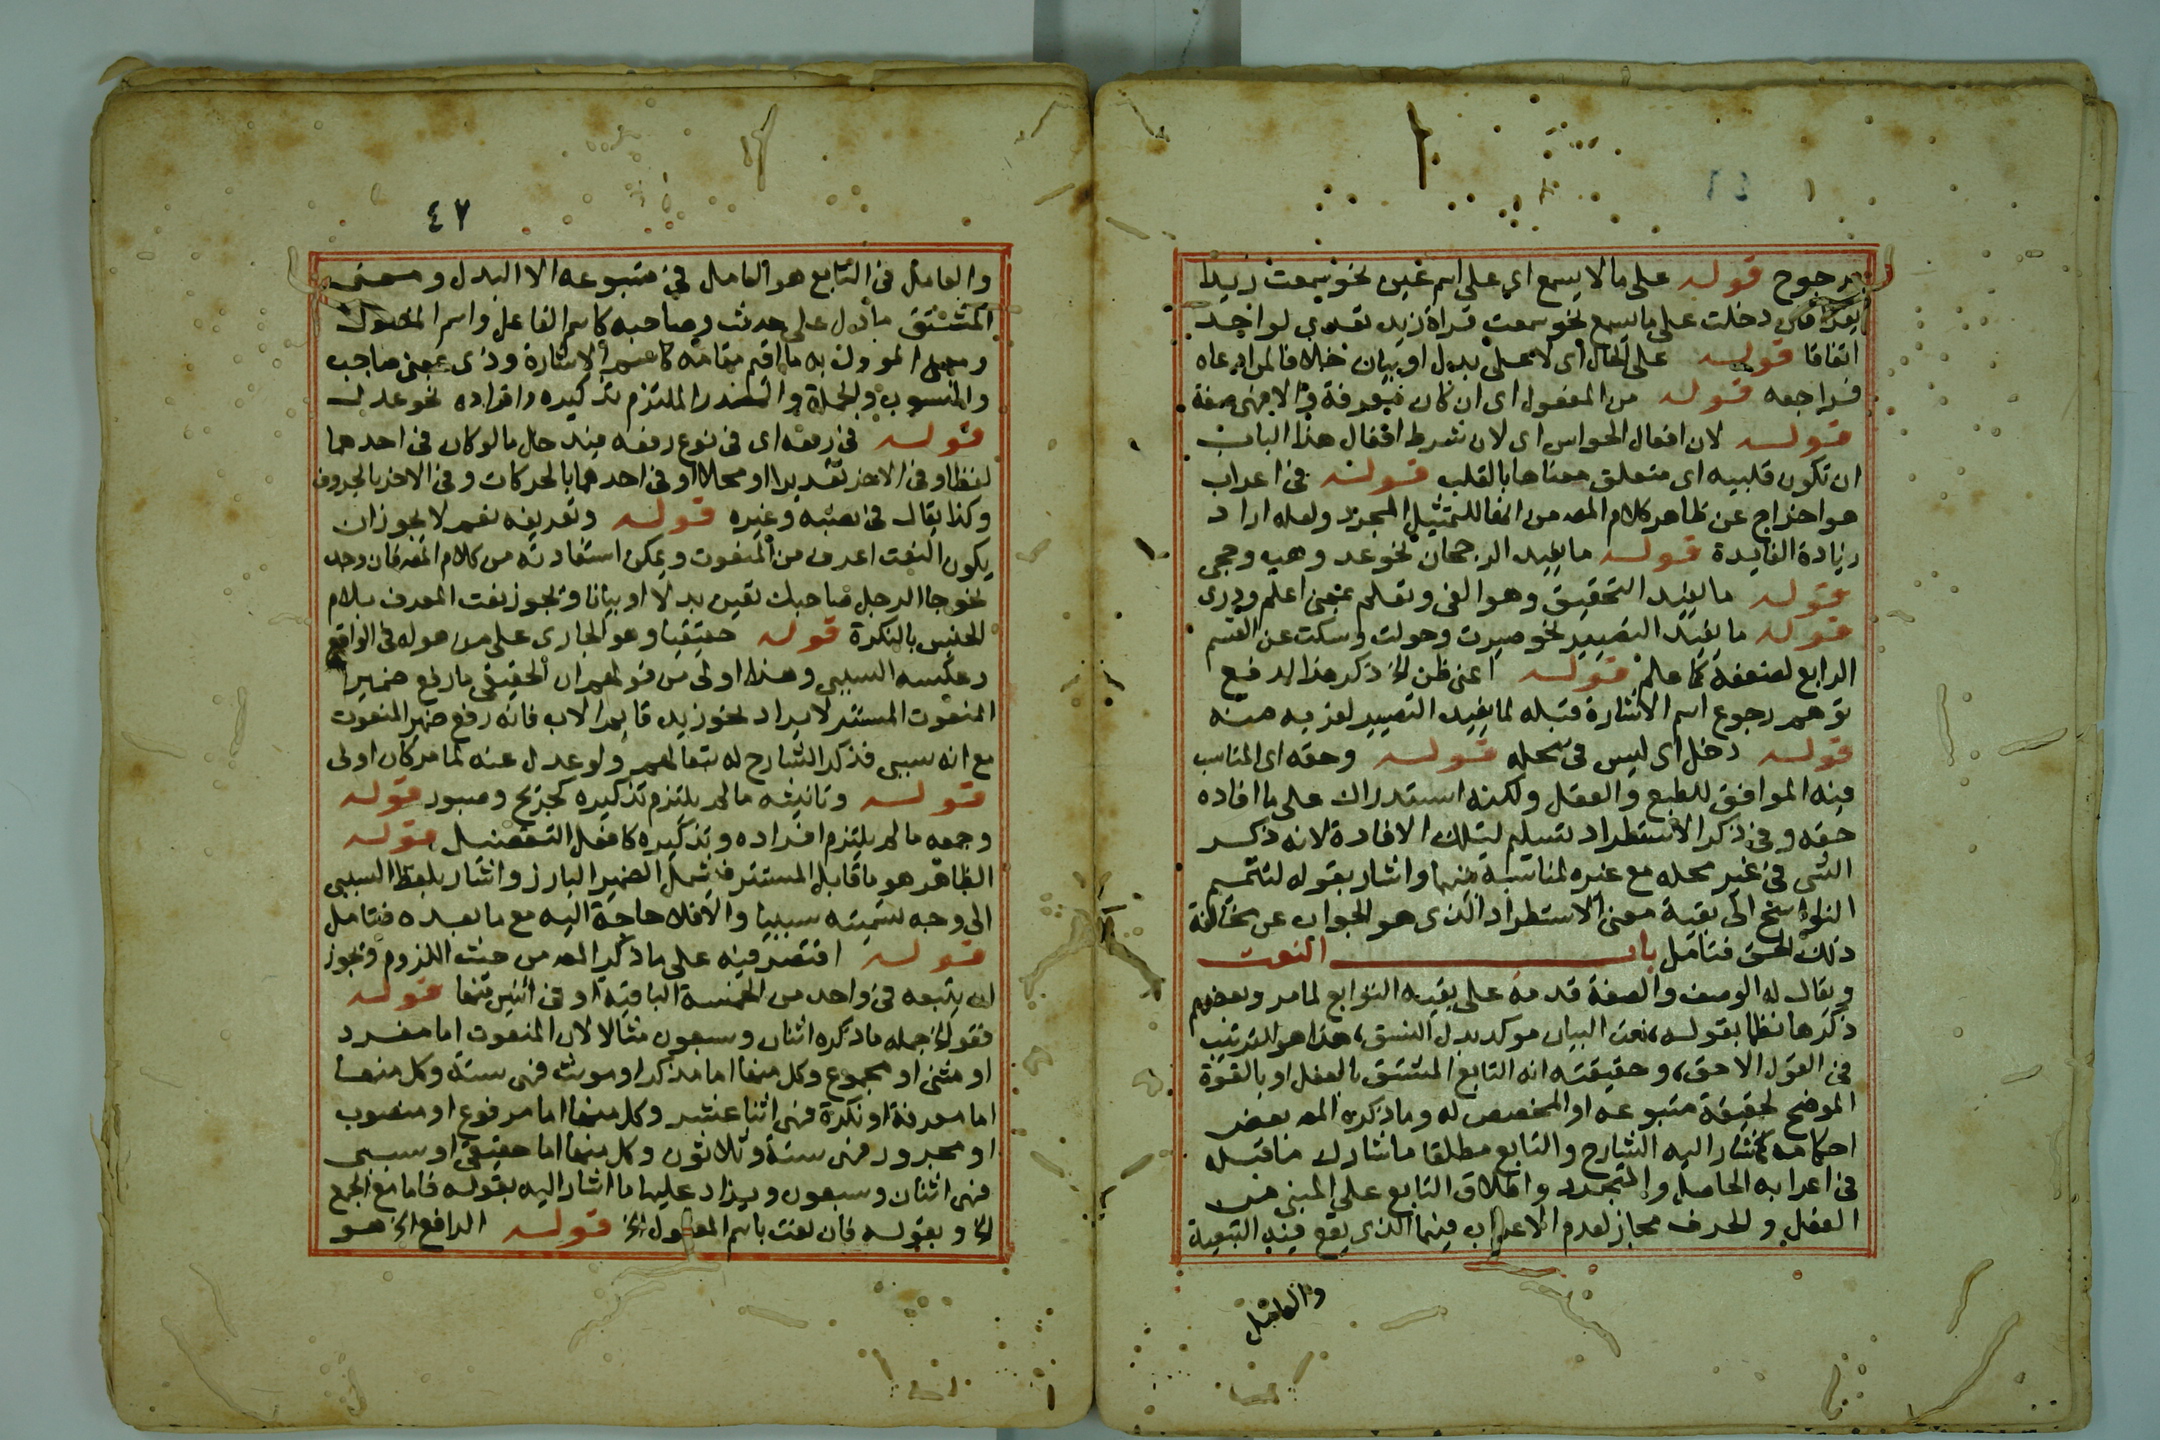 مرجوح قوله على ما لا يسمع اى على اسم عين نحو سمعت زيدا
فان دخلت على ما يسمع نحو سمعت قراة زيد تعدى لواحد
اتفاقا قوله على الحال اى لا على بدل او بيان خلافا لمن ادعاه
فراجعه قوله من المفعول اى ان كان معرفة والا فهى صفة
قوله لان افعال الحواس اى لان شرط افعال هذا الباب
ان تكون قلبيه اى متعلق معناها بالقلب قوله فى اعراب
هو اخراج عن ظاهر كلام المص من انها للتمثيل المجرد ولعله اراد
زيادة الفايدة قوله ما يفيد الرجحان نحو عد وهب وحجى
قوله ما يفيد التحقيق وهو الفى وتعلم بمعنى اعلم ودرى
قوله ما يفيد التصيير نحو صيرت وحولت وسكت عن القسم
الرابع لضعفه كما علم قوله اعنى ظن الخ ذكر هذا لدفع
توهم رجوع اسم الاشارة قبله لما يفيد التصيير لقربه منه
قوله دخل اى ليس فى محله قوله وحقه اى المناسب
فيه الموافق للطبع والعقل ولكنه استدراك على ما افاده
حقه وفى ذكر الاستطراد تسليم لتلك الافادة لانه ذكر
الشى فى غير محله مع غيره لمناسبة بينهما واشار بقوله لتتميم
النواسخ الى بقية معنى الاستطراد الذى هو الجواب عن مخالفة
ذلك الحق فتامل باب النعت
ويقال له الوصف والصفة قدمه على بقيه التوابع لما مر وبعضهم
ذكرها نظما بقوله، نعت البيان موكد بدل النسق، هذا هو الترتيب
فى القول الاحق، وحقيقته انه التابع المشتق بالفعل او بالقوة
الموضح لحقيقة متبوعه او المخصص له وما ذكره المص بعض
احكامه كما اشار اليه الشارح والتابع مطلقا ما شارك ما قبله
فى اعرابه الحاصل والمتجدد واطلاق التابع على المبنى من
الفعل والحرف مجاز لعدم الاعراب فيهما الذى يقع فيه التبعية
والعامل
٤٧
والعامل فى التابع هو العامل فى متبوعه الا البدل ومعنى
المشتق ما دل على حدث وصاحبه كاسم الفاعل واسم المفعول
ومعنى المؤول به ما اقيم مقامه كاسم الاشارة وذى بمعنى صاحب
والمنسوب والجملة والمصدر الملتزم تذكيره وافراده نحو عدل
قوله فى رفعه اى فى نوع رفعه فيدخل ما لو كان فى احدهما
لفظا وفى الاخر تقديرا او محلا او فى احدهما بالحركات وفى الاخر بالحروف
وكذا يقال فى نصبه وغيره قوله وتعريفه نعم لا يجوز ان
يكون النعت اعرف من المنعوت ويمكن استفادته من كلام المص فان وجد
نحو جا الرجل صاحبك تعين بدلا او بيانا ويجوز نعت المعرف بلام
الجنس بالنكرة قوله حقيقيا وهو الجارى على من هو له فى الواقع
وعكسه السببى وهذا اولى من قولهم ان الحقيقى ما رفع ضمير
المنعوت المستتر لايراد نحو زيد قايم الاب فانه رفع ضمير المنعوت
مع انه سببى فذكر الشارح له تبعا لهم ولو عدل عنه لما مر كان اولى
قوله وتانيثه ما لم يلتزم تذكيره كجريح وصبور قوله
وجمعه ما لم يلتزم افراده وتذكيره كافعل التفضيل قوله
الظاهر هو ما قابل المستتر فيشمل الضمير البارز واشار بلفظ السببى
الى وجه تسميته سببيا والا فلا حاجة اليه مع ما بعده فتامل
قوله اقتصر فيه على ما ذكر المص من حيث اللزوم ويجوز
ان يتبعه فى واحد من الخمسة الباقية او فى اثنين منها قوله
فقول الخ جمله ما ذكره اثنان وسبعون مثالا لان المنعوت اما مفرد
او مثنى او مجموع وكل منها اما مذكر او مونث فهى ستة وكل منها
اما معرفة او نكرة فهى اثنا عشر وكل منها اما مرفوع او منصوب
او مجرور فهى ستة وثلاثون وكل منها اما حقيقى او سببى
فهى اثنان وسبعون ويزاد عليها ما اشار اليه بقوله فاما مع الجمع
الخ وبقوله فان نعت باسم المفعول الخ قوله الرافع الخ هو